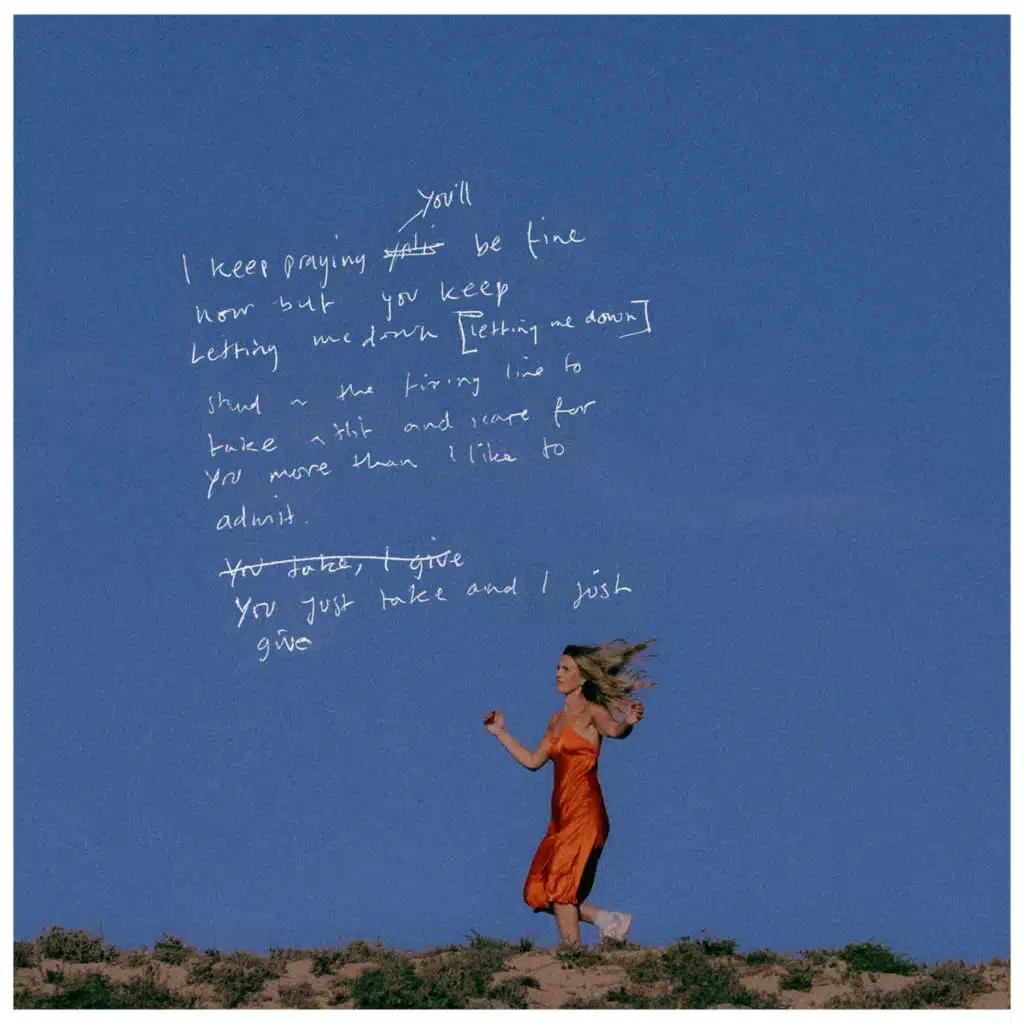 You'll
I keep praying be fine
now but you keep
Letting me down [letting me down]
stand in the firing line to
take a hit and I care for
you more than I like to
admit.
You take, I give
You just take and I just
give